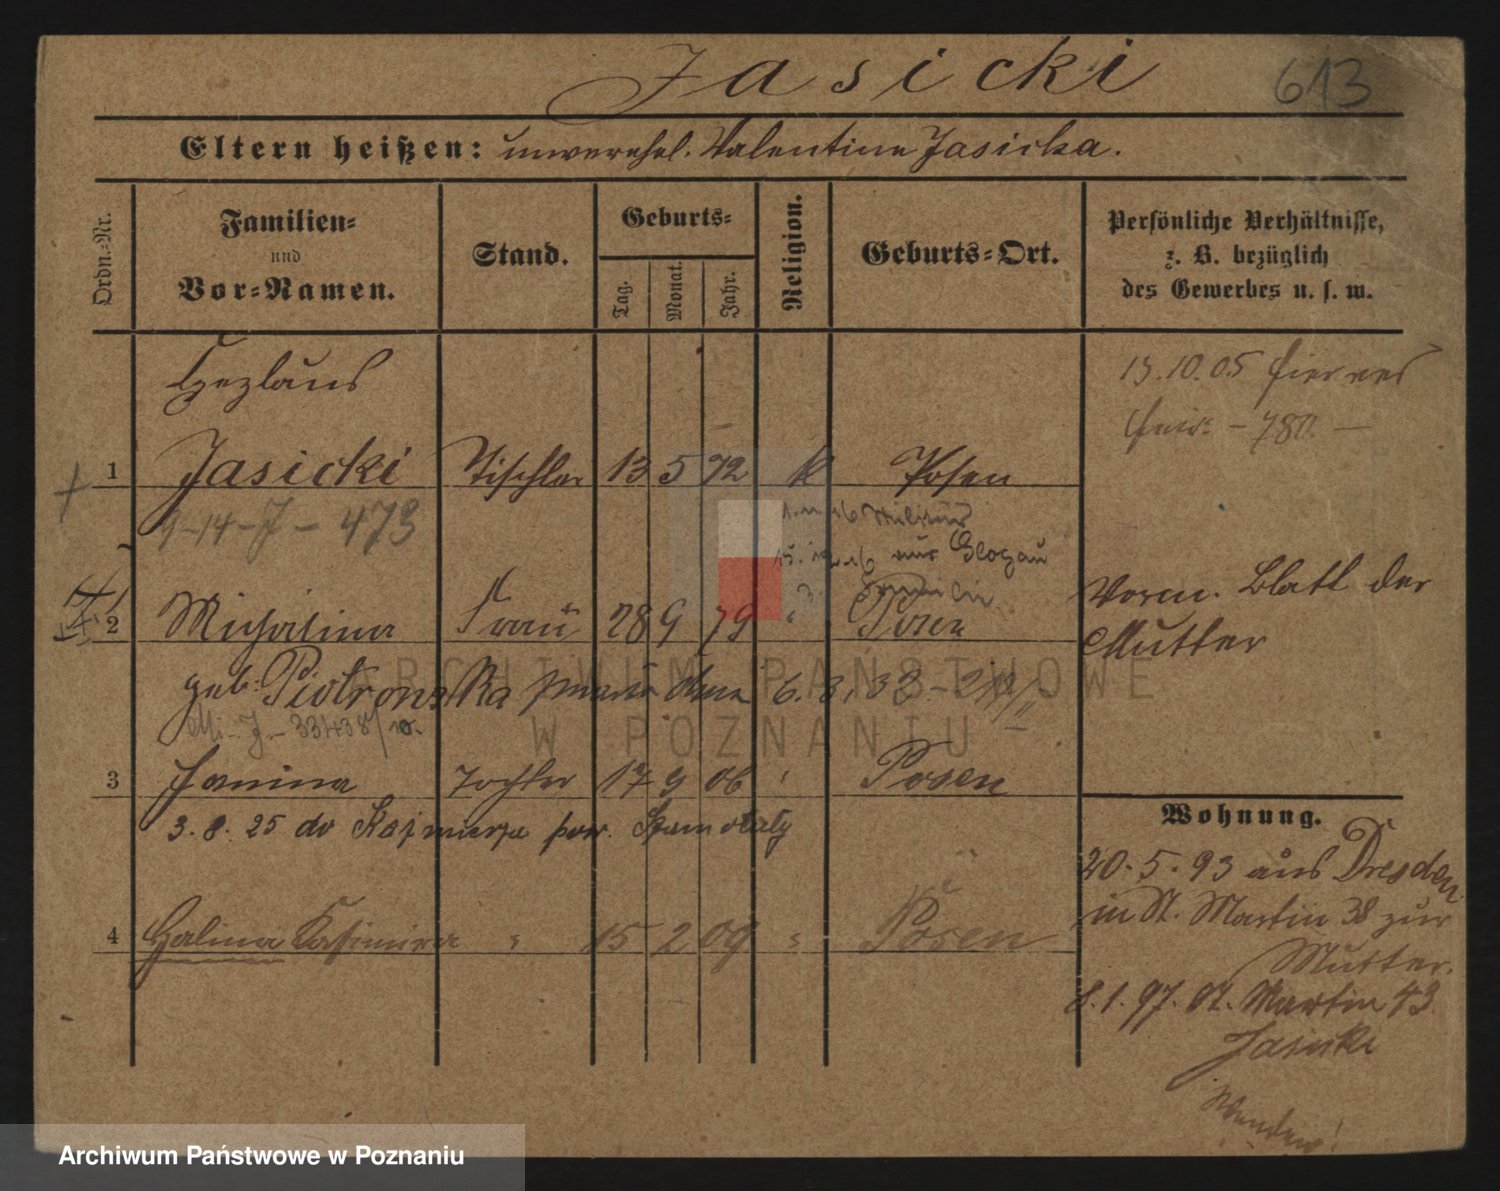 Jasicki
613
Eltern heißen: unverehel. Valentine Jasicka.
Ordn.-Nr.
Familien-
und
Vor-Namen.
Stand.
Geburts-
Tag.
Monat.
Jahr.
Religion.
Geburts-Ort.
Persönliche Verhältnisse,
z. B. bezüglich
des Gewerbes u. s. w.
Czeslaus
1 Jasicki Tischler 13 5 72 k Posen
9-14-J-473
1. 16 Militär
15. 12. 16 aus Glogau
Familie
2 Michalina Frau 28 9 79 " Posen
geb. Piotrowska 6. 8. 32
Mi. J. - 33438/
3 Janina Tochter 17 9 06 " Posen
3. 8. 25 do Kazmierza pow. Szamotuły
4 Halina Kasimira " 15 2 09 " Posen
13.10.05
- 780. -
Vorm. Blatt der
Mutter
Wohnung.
20.5.93 aus Dresden
in St. Martin 38 zur
Mutter.
8.1.97. St. Martin 43
Jasicki
Wenden!
ARCHIWUM PAŃSTWOWE
W POZNANIU
Archiwum Państwowe w Poznaniu